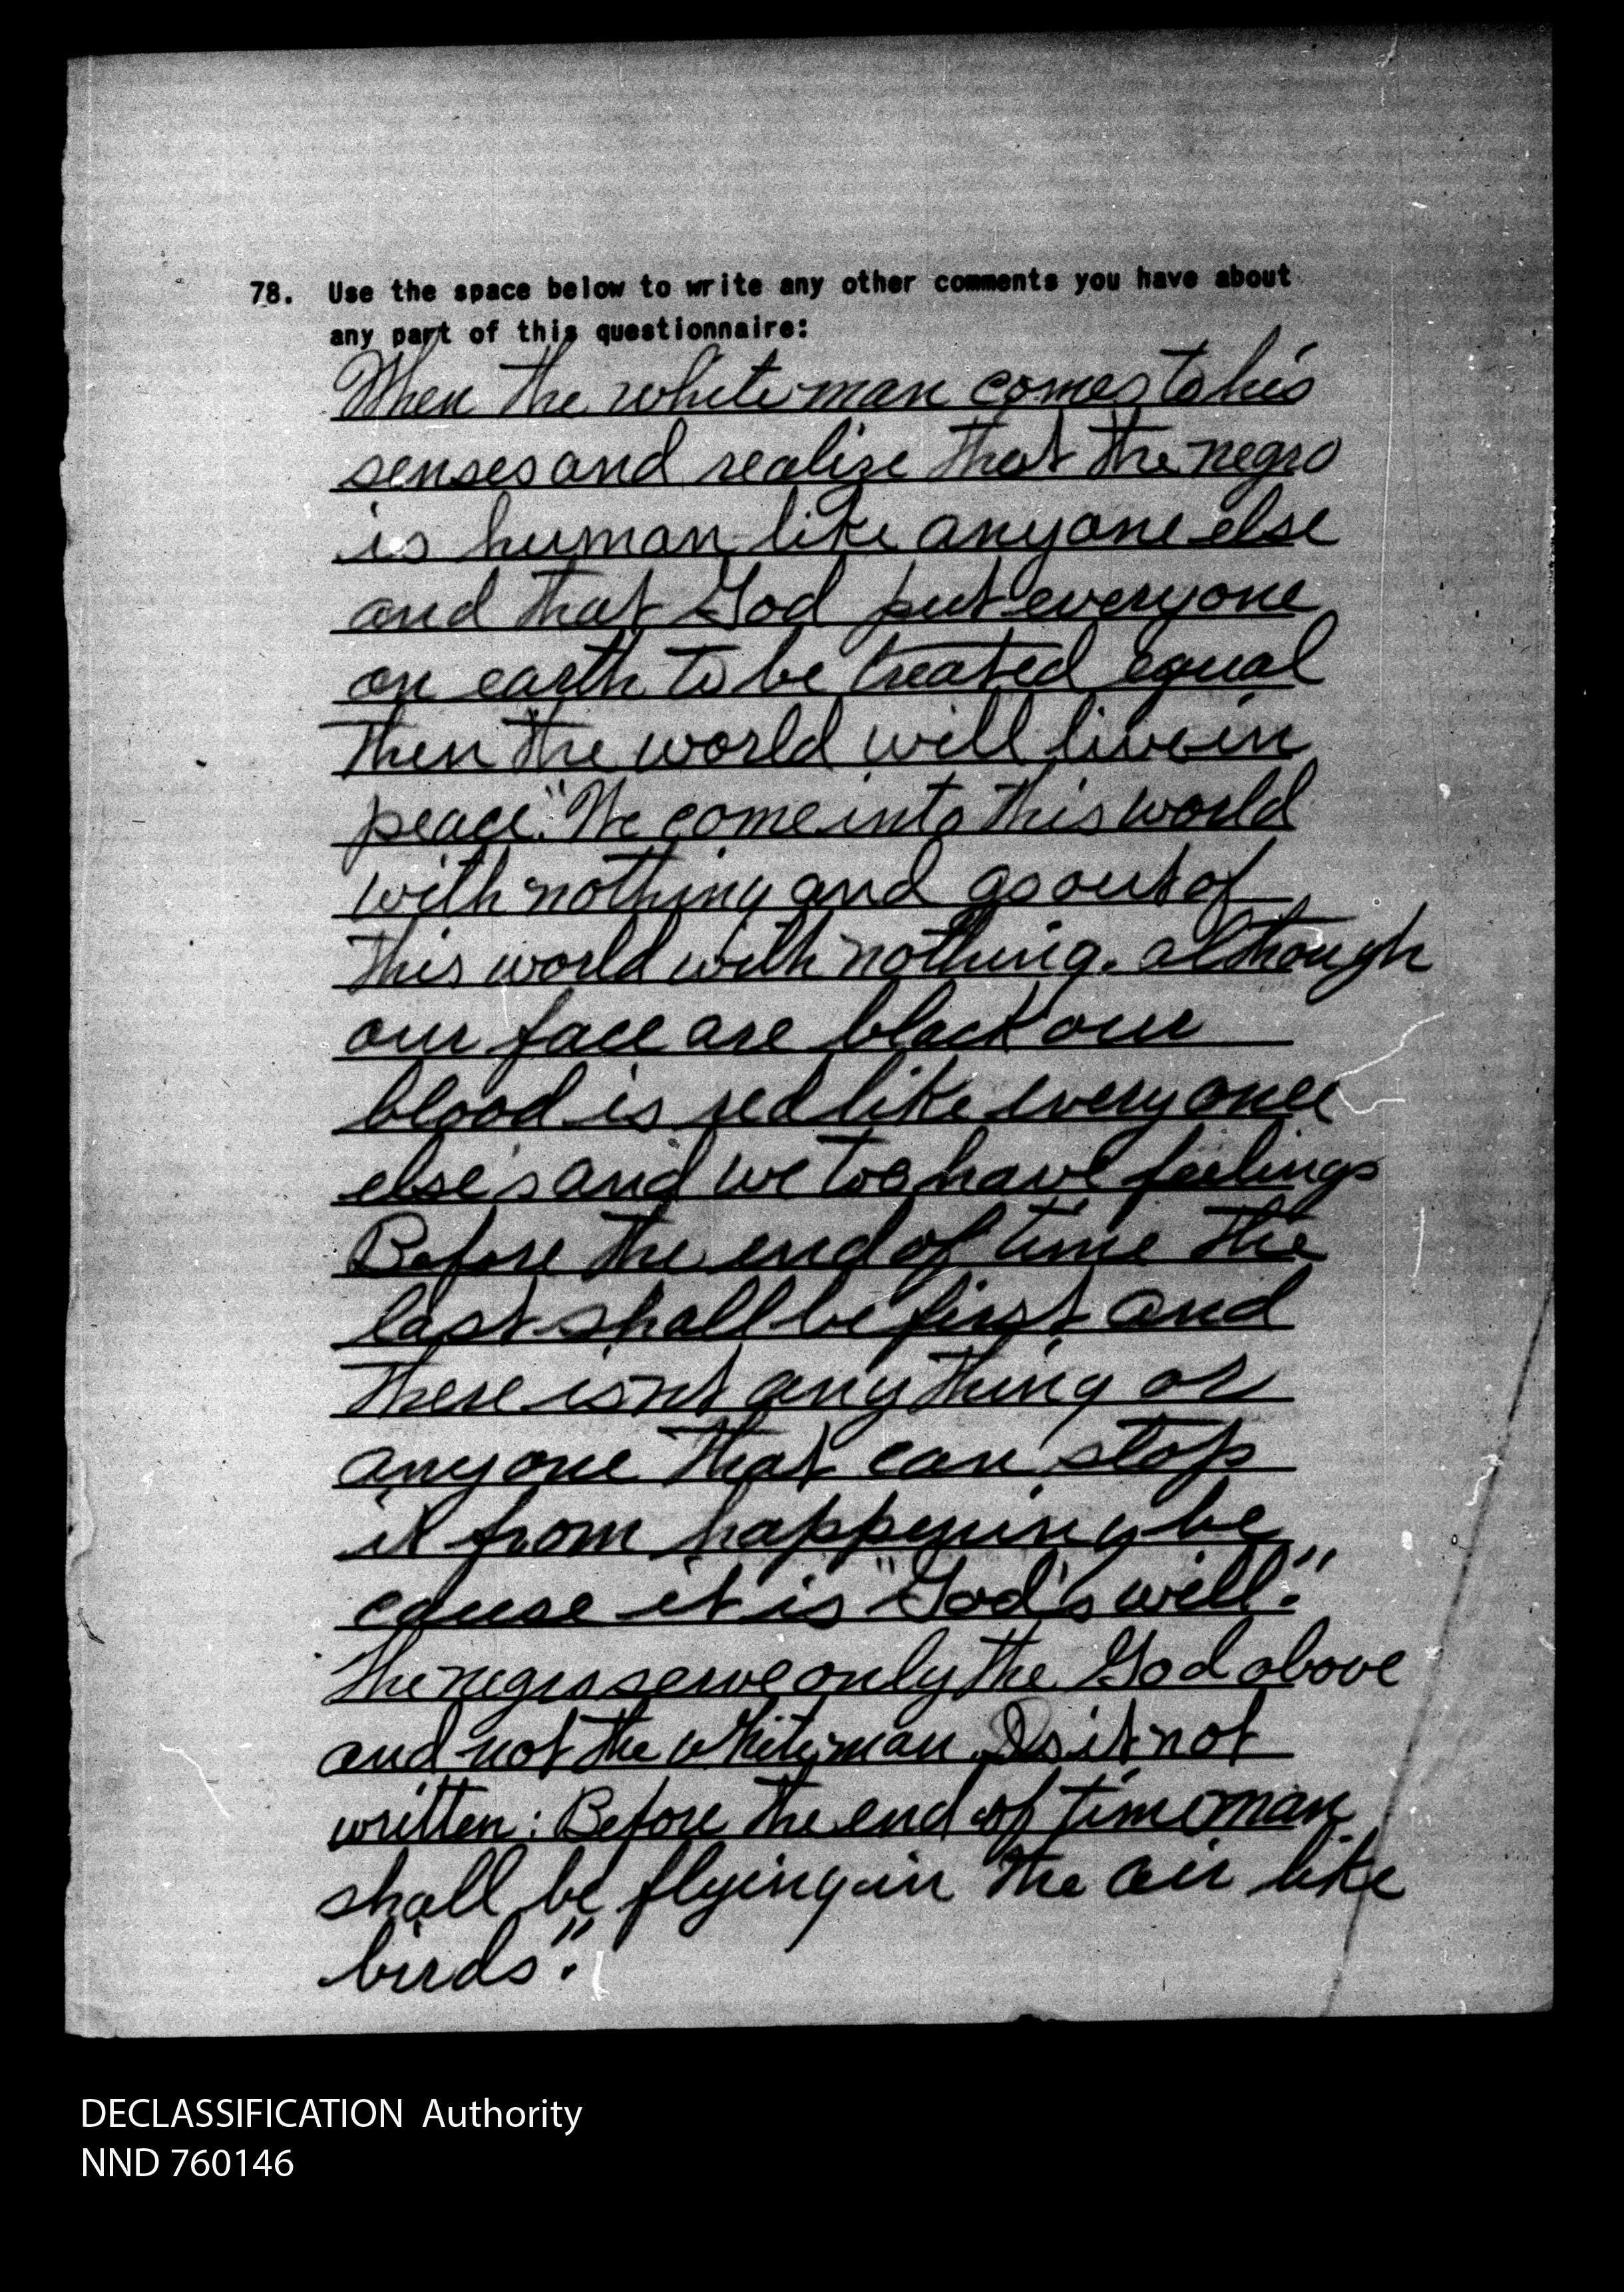 78. Use the space below to write any other comments you have about
any part of this questionnaire:
When the white man comes to his
senses and realize that the negro
is human like anyone else
and that God put everyone
on earth to be treated equal
then the world will live in
peace. "We come into this world
with nothing and go out of
this world with nothing. although
our face are black our
blood is red like everyone
else's and we too have feelings
Before the end of time the
last shall be first and
there isn't any thing or
anyone that can stop
it from happening be
cause it is "God's will."
The negro serve only the God above
and not the white man. Is it not
written: Before the end of time man
shall be flying in the air like
birds".
DECLASSIFICATION Authority
NND 760146